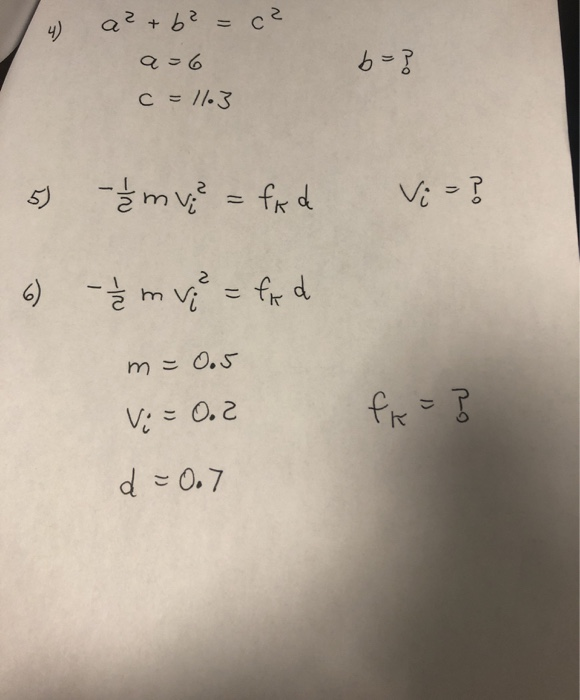 4) a² + b² = c²
a = 6 b = ?
c = 11.3
5) -½ m vᵢ² = fₖ d Vᵢ = ?
6) -½ m vᵢ² = fₖ d
m = 0.5
Vᵢ = 0.2 fₖ = ?
d = 0.7